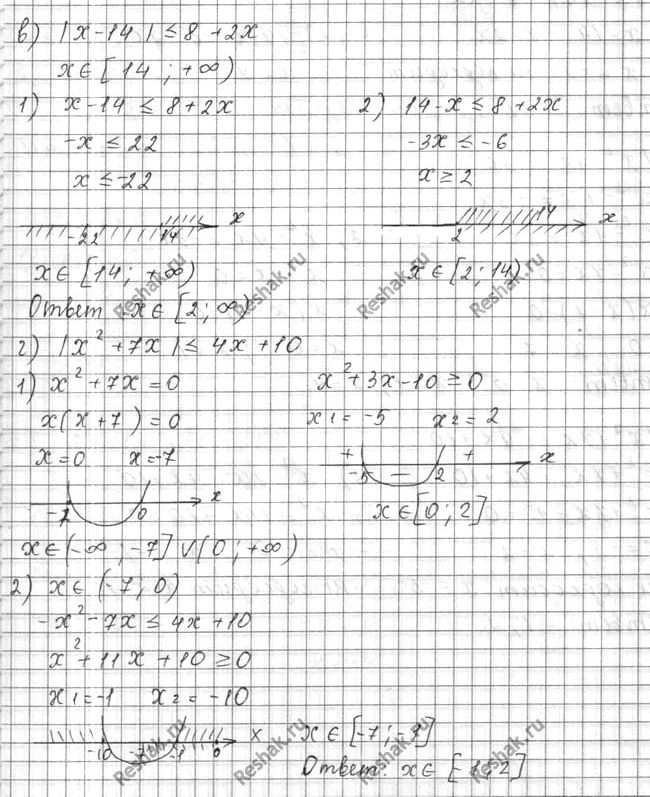 в) |x-14| ≤ 8+2x
x∈[14; +∞)
1) x-14 ≤ 8+2x
-x ≤ 22
x ≤ -22
-22 14 x
x∈[14; +∞)
2) 14-x ≤ 8+2x
-3x ≤ -6
x ≥ 2
2 14 x
x∈[2; 14)
Ответ: x∈[2; ∞)
г) |x²+7x| ≤ 4x+10
1) x²+7x=0
x(x+7)=0
x=0 x=-7
-7 0 x
x∈(-∞; -7]∨(0; +∞)
x²+3x-10≥0
x1=-5 x2=2
+ -5 - 2 + x
x∈[0; 2]
2) x∈(-7; 0)
-x²-7x ≤ 4x+10
x²+11x+10≥0
x1=-1 x2=-10
-10 -7 -1 0 x
x∈[-7; -1]
Ответ: x∈[-1; 2]
Reshak.ru
Reshak.ru
Reshak.ru
Reshak.ru
Reshak.ru
Reshak.ru
Reshak.ru
Reshak.ru